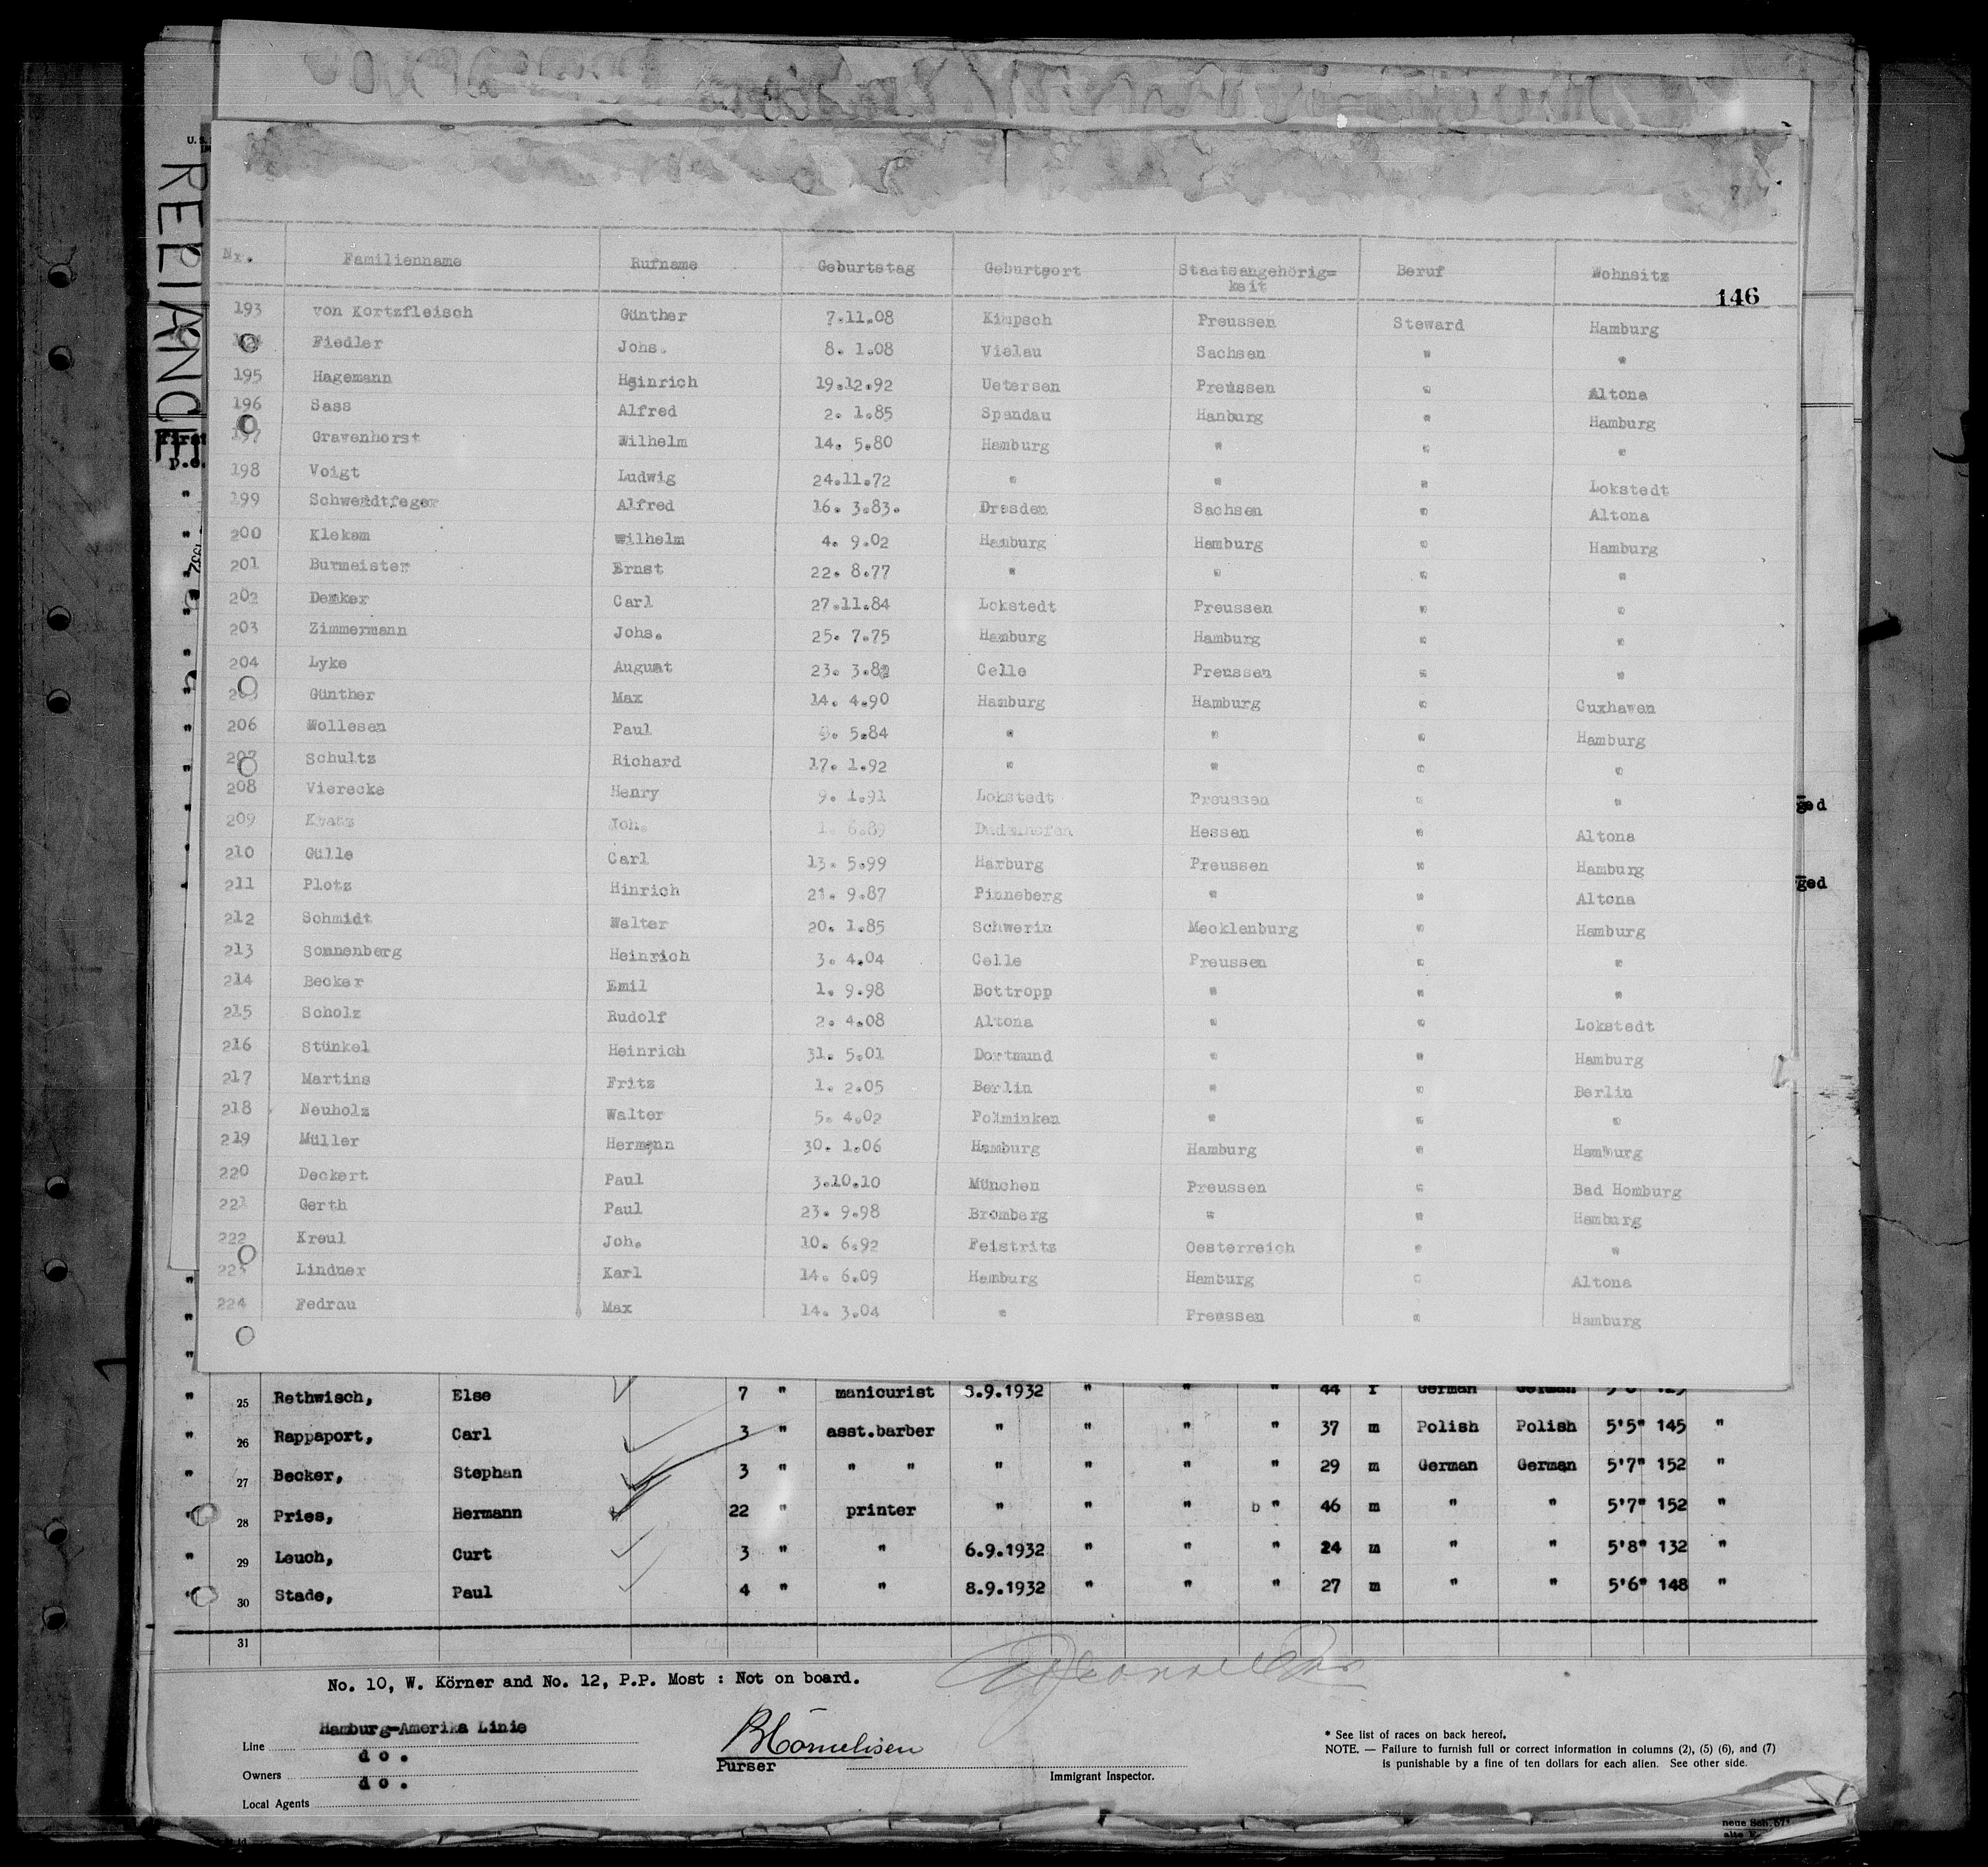 U. S.
RELIANCE
Nr. Familienname Rufname Geburtstag Geburtsort Staatsangehörig= Beruf Wohnsitz
keit
146
193 von Kortzfleisch Günther 7.11.08 Preussen Steward Hamburg
Fiedler Johs. 8. 1.08 Vielau Sachsen " "
195 Hagemann Heinrich 19.12.92 Uetersen Preussen " Altona
196 Sass Alfred 2. 1.85 Spandau Hamburg " Hamburg
197 Gravenhorst Wilhelm 14. 5.80 Hamburg " " "
198 Voigt Ludwig 24.11.72 " " " Lokstedt
199 Schwerdtfeger Alfred 16. 3.83. Dresden Sachsen " Altona
200 Klekam Wilhelm 4. 9.02 Hamburg Hamburg " Hamburg
201 Burmeister Ernst 22. 8.77 " " " "
202 Demker Carl 27.11.84 Lokstedt Preussen " "
203 Zimmermann Johs. 25. 7.75 Hamburg Hamburg " "
204 Lyke August 23. 3.82 Celle Preussen " "
205 Günther Max 14. 4.90 Hamburg Hamburg " Cuxhaven
206 Wollesen Paul 5.84 " " " Hamburg
207 Schultz Richard 17. 1.92 " " " "
208 Vierecke Henry 9. 1.91 Lokstedt Preussen " "
209 Joh. 1. 6.89 Hessen " Altona
210 Gülle Carl 13. 5.99 Harburg Preussen " Hamburg
211 Plotz Hinrich 21. 9.87 Pinneberg " " Altona
212 Schmidt Walter 20. 1.85 Schwerin Mecklenburg " Hamburg
213 Sonnenberg Heinrich 3. 4.04 Celle Preussen " "
214 Becker Emil 1. 9.98 Bottropp " " "
215 Scholz Rudolf 2. 4.08 Altona " " Lokstedt
216 Stünkel Heinrich 31. 5.01 Dortmund " " Hamburg
217 Martins Fritz 1. 2.05 Berlin " " Berlin
218 Neuholz Walter 5. 4.02 " " "
219 Müller Hermann 30. 1.06 Hamburg Hamburg " Hamburg
220 Deckert Paul 3.10.10 München Preussen " Bad Homburg
221 Gerth Paul 23. 9.98 Bromberg " " Hamburg
222 Kreul Joh. 10. 6.92 Feistritz Oesterreich " "
223 Lindner Karl 14. 6.09 Hamburg Hamburg " Altona
224 Fedrau Max 14. 3.04 " Preussen " Hamburg
" 25 Rethwisch, Else 7 " manicurist 3.9.1932 " " " 44 f German German
" 26 Rappaport, Carl 3 " asst.barber " " " " 37 m Polish Polish 5'5" 145 "
" 27 Becker, Stephan 3 " " " " " " " 29 m German German 5'7" 152 "
" 28 Pries, Hermann 22 " printer " " " b " 46 m " " 5'7" 152 "
" 29 Leuch, Curt 3 " " 6.9.1932 " " " 24 m " " 5'8" 132 "
" 30 Stade, Paul 4 " " 8.9.1932 " " " 27 m " " 5'6" 148 "
31
No. 10, W. Körner and No. 12, P.P. Most : Not on board.
Line Hamburg-Amerika Linie
Owners d o .
Local Agents d o .
BCornelisen
Purser
Immigrant Inspector.
* See list of races on back hereof.
NOTE. — Failure to furnish full or correct information in columns (2), (5) (6), and (7)
is punishable by a fine of ten dollars for each alien. See other side.